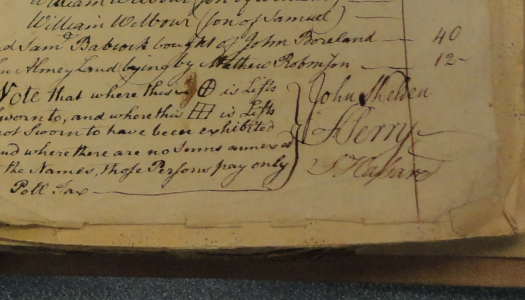 William Wilbour (son of Samuel)
Sam.d Babcock bought of John Boreland — 40
Land lying by Mathew Robinson — 12-
Note that where this ⊕ is Lists
sworn to, and where this is Lists
not Sworn to have been exhibited
and where there are no Sums annex'd
the Names, those Persons pay only
Poll Tax
John Shelden
Perry